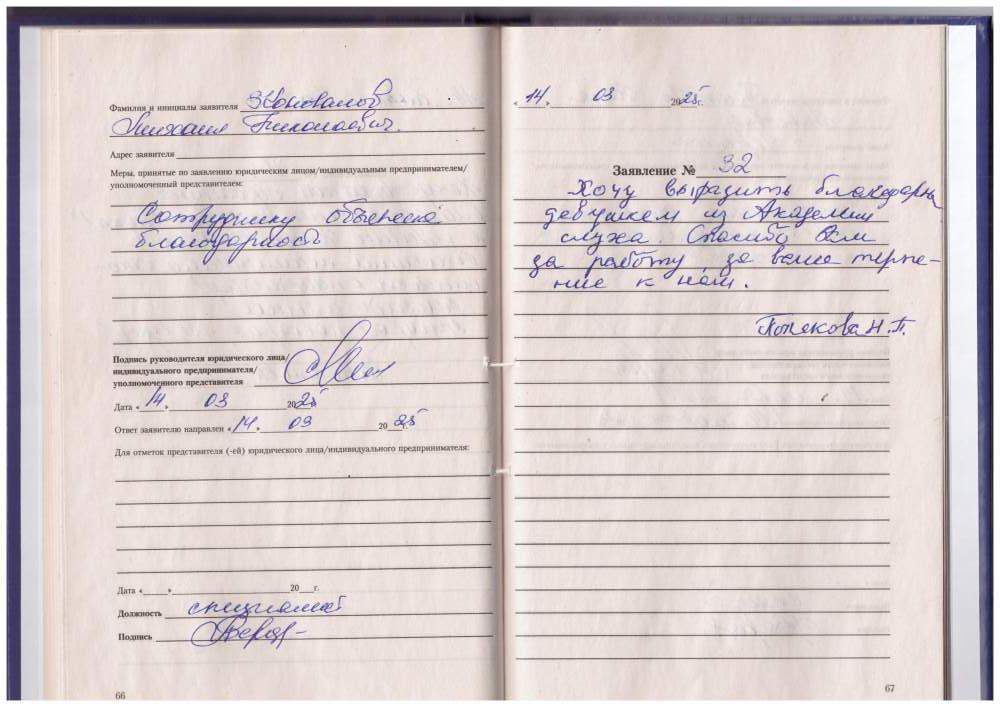 Фамилия и инициалы заявителя Коновалов
Михаил Николаевич.
Адрес заявителя
Меры, принятые по заявлению юридическим лицом/индивидуальным предпринимателем/
уполномоченный представителем:
Сотруднику объявлена
благодарность
Подпись руководителя юридического лица/
индивидуального предпринимателя/
уполномоченного представителя
Дата «14» 03 2025г.
Ответ заявителю направлен «14» 03 2025г.
Для отметок представителя (-ей) юридического лица/индивидуального предпринимателя:
Дата «____» 20__г.
Должность специалист
Подпись
66
«14. 03 2025г.
Заявление № 32
Хочу выразить благодарн
девушкем из Академии
слуха. Спасибо Вам
за работу, за ваше терпе-
ние к нам.
Н.П.
67